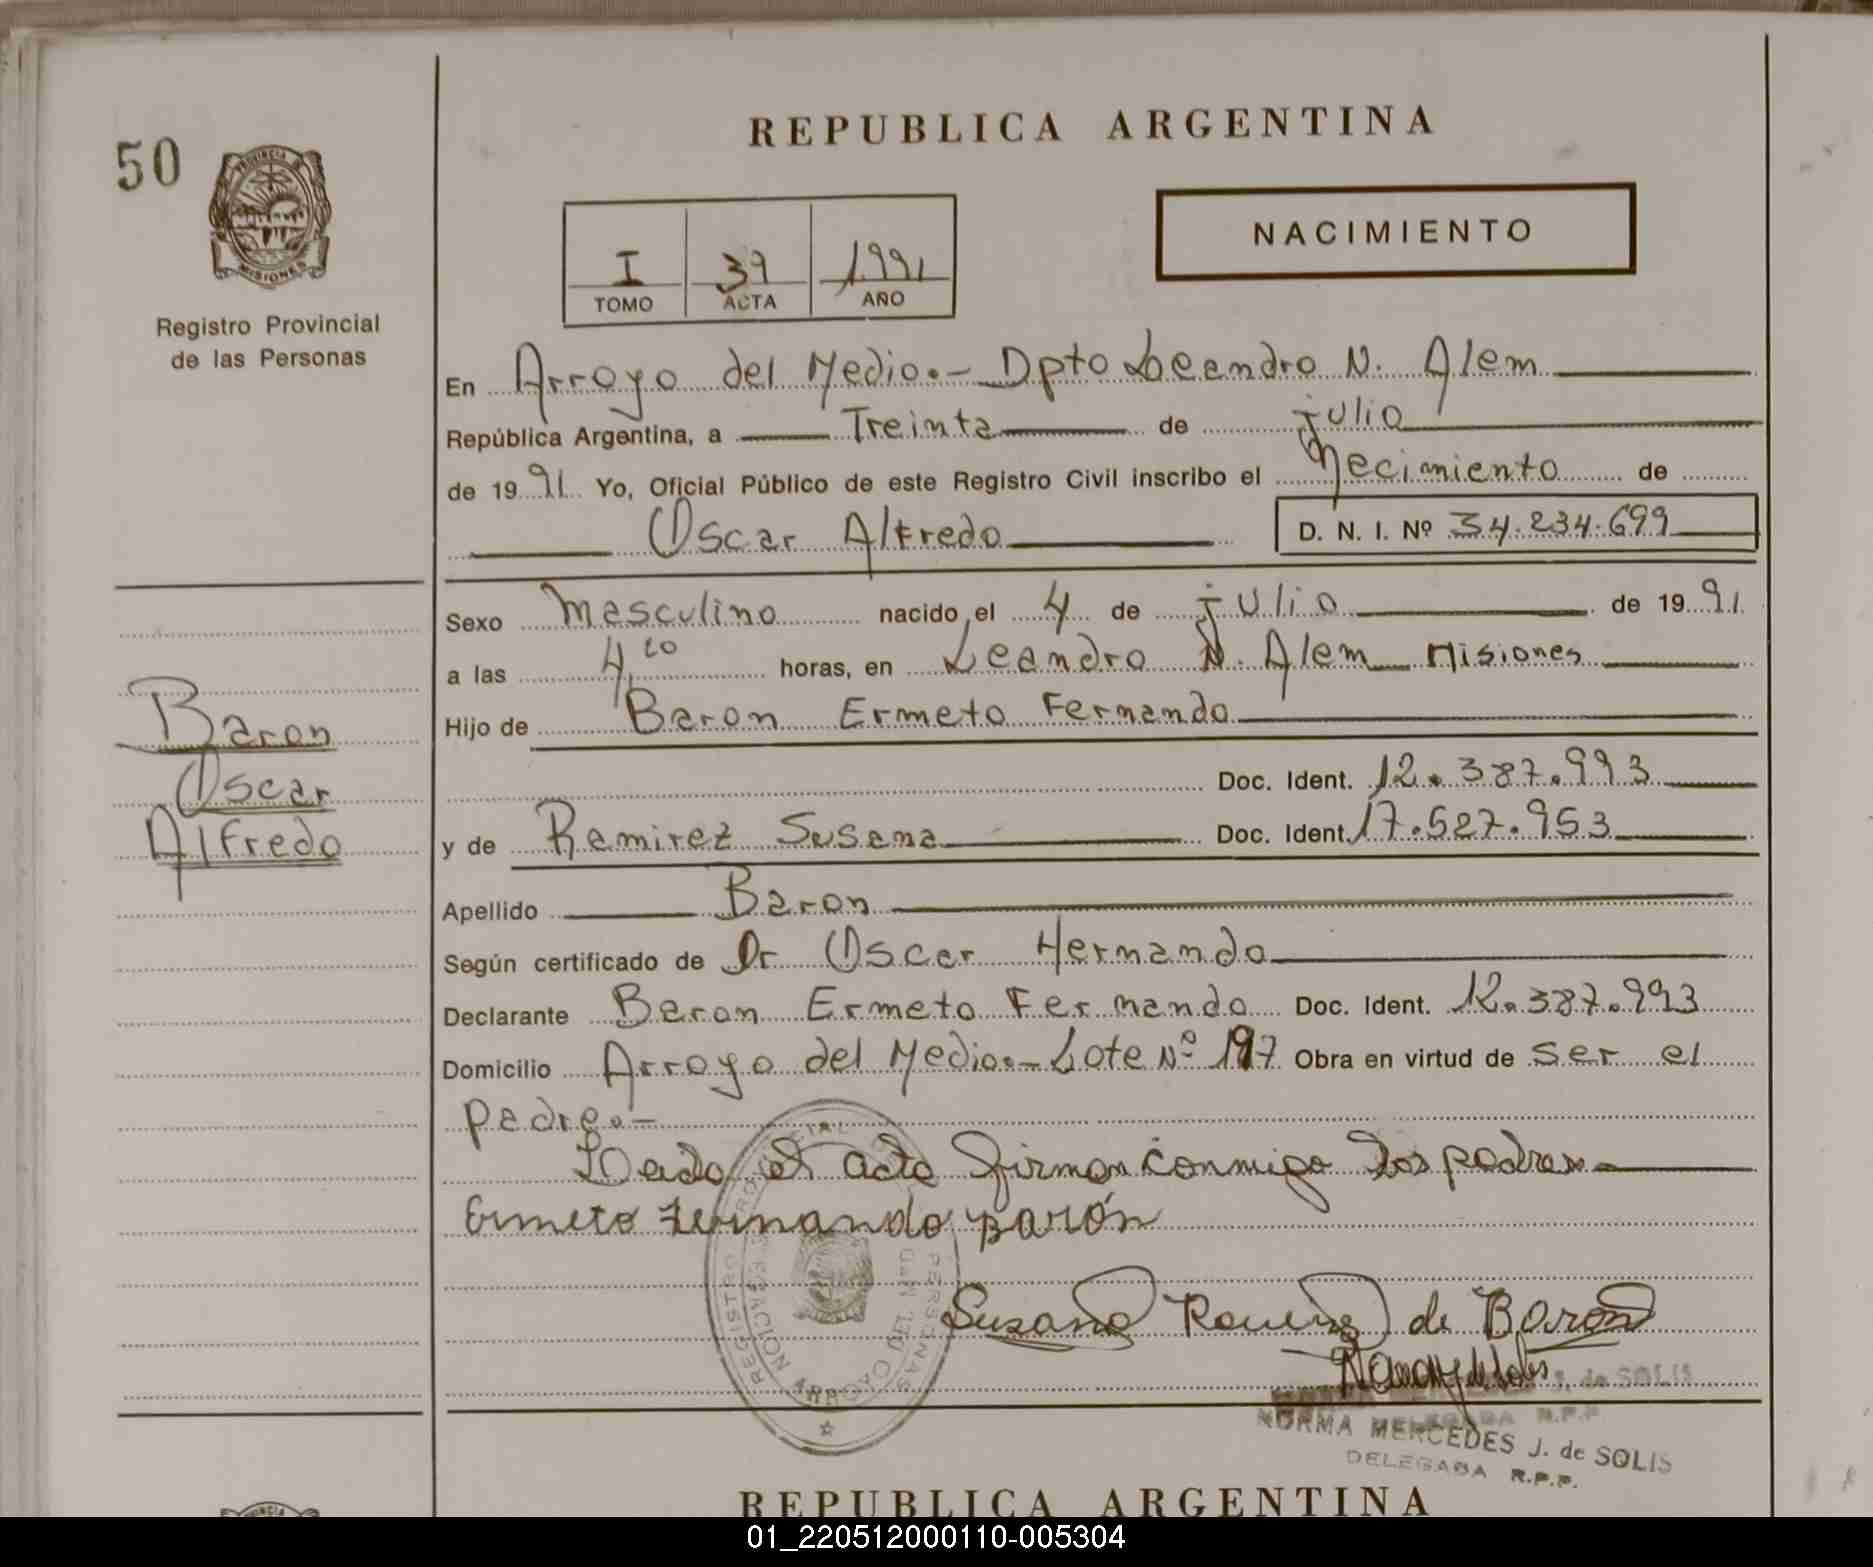 50
PROVINCIA
MISIONES
Registro Provincial
de las Personas
REPUBLICA ARGENTINA
I 39 1991
TOMO ACTA AÑO
NACIMIENTO
En Arroyo del Medio.- Dpto Leandro N. Alem
República Argentina, a Treinta de julio
de 1991 Yo, Oficial Público de este Registro Civil inscribo el Nacimiento de
Oscar Alfredo D. N. I. Nº 34.234.699
Sexo Masculino nacido el 4 de julio de 1991
a las 4,20 horas, en Leandro N. Alem Misiones
Hijo de Baron Ermeto Fernando
Doc. Ident. 12.387.993
y de Ramirez Susana Doc. Ident. 17.527.953
Apellido Baron
Según certificado de Dr Oscar Hernando
Declarante Baron Ermeto Fernando Doc. Ident. 12.387.993
Domicilio Arroyo del Medio.- Lote Nº 197 Obra en virtud de ser el
padre.-
Leido el acta firman conmigo los padres
Ermeto Fernando barón
Susana Ramirez de Baron
Baron
Oscar
Alfredo
REGISTRO PERSONAS
J. de SOLIS
R.P.P.
NORMA MERCEDES J. de SOLIS
DELEGADA R.P.P.
REPUBLICA ARGENTINA
01_220512000110-005304